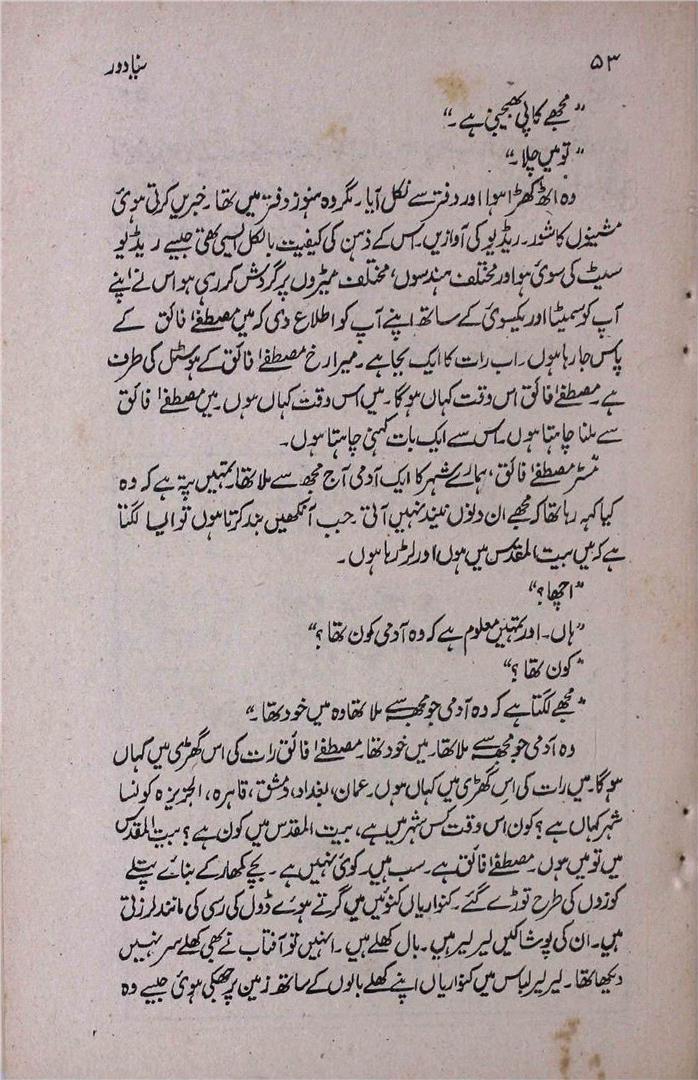 ۵۳ نیا دور
”مجھے کاپی بھیجنی ہے۔“
”تو میں چلا۔“
وہ اٹھ کھڑا ہوا اور دفتر سے نکل آیا۔ مگر وہ ہنوز دفتر میں تھا۔ خبریں کرتی ہوئی
مشینوں کا شور۔ ریڈیو کی آوازیں۔ اس کے ذہن کی کیفیت بالکل ایسی تھی جیسے ریڈیو
سیٹ کی سوئی ہو اور مختلف ہندسوں، مختلف میٹروں پر گردش کر رہی ہو اس نے اپنے
آپ کو سمیٹا اور یکسوئی کے ساتھ اپنے آپ کو اطلاع دی کہ میں مصطفےٰ فائق کے
پاس جا رہا ہوں۔ اب رات کا ایک بجا ہے۔ میرا رخ مصطفےٰ فائق کے ہوسٹل کی طرف
ہے۔ مصطفےٰ فائق اس وقت کہاں ہوگا۔ میں اس وقت کہاں ہوں۔ میں مصطفےٰ فائق
سے ملنا چاہتا ہوں۔ اس سے ایک بات کہنی چاہتا ہوں۔
مسٹر مصطفےٰ فائق، ہمارے شہر کا ایک آدمی آج مجھ سے ملا تھا۔ تمہیں پتہ ہے کہ وہ
کیا کہہ رہا تھا کہ مجھے ان دنوں نیند نہیں آتی۔ جب آنکھیں بند کرتا ہوں تو ایسا لگتا
ہے کہ میں بیت المقدس میں ہوں اور لڑ رہا ہوں۔
”اچھا؟“
”ہاں۔ اور تمہیں معلوم ہے کہ وہ آدمی کون تھا؟“
”کون تھا؟“
”مجھے لگتا ہے کہ وہ آدمی جو مجھ سے ملا تھا وہ میں خود تھا۔“
وہ آدمی جو مجھ سے ملا تھا۔ میں خود تھا۔ مصطفےٰ فائق رات کی اس گھڑی میں کہاں
ہوگا۔ میں رات کی اس گھڑی میں کہاں ہوں۔ عمان، بغداد، دمشق، قاہرہ، الجزیرہ کونسا
شہر کہاں ہے؟ کون اس وقت کس شہر میں ہے، بیت المقدس میں کون ہے؟ بیت المقدس
میں تو میں ہوں۔ مصطفےٰ فائق ہے۔ سب ہیں۔ کوئی نہیں ہے۔ بچے کمھار کے بنائے پتلے
کوزوں کی طرح توڑے گئے۔ کنواریاں کنوئیں میں گرتے ہوئے ڈول کی رسی کی مانند لرزتی
ہیں۔ ان کی پوشاکیں لیر لیر ہیں۔ بال کھلے ہیں۔ انہیں تو آفتاب نے بھی کھلے سر نہیں
دیکھا تھا۔ لیر لیر لباس میں کنواریاں اپنے کھلے بالوں کے ساتھ زمین پر جھکی ہوئی جیسے وہ